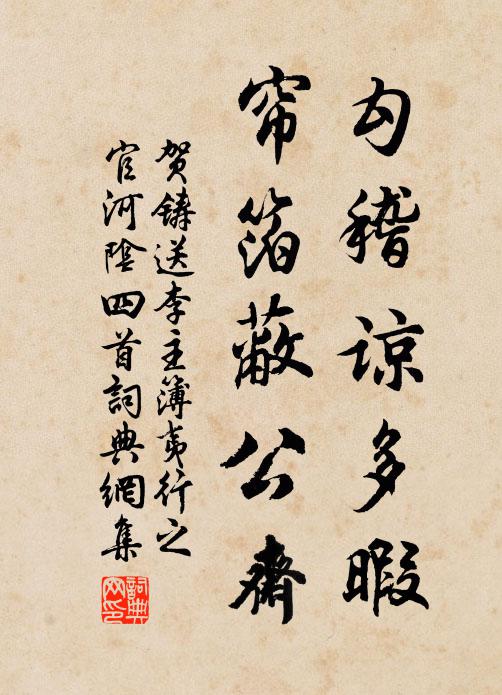 勾稽谅多暇
帘箔蔽公斋
贺铸送李主簿夷行之
官河阴四首词典网集
词典
网印